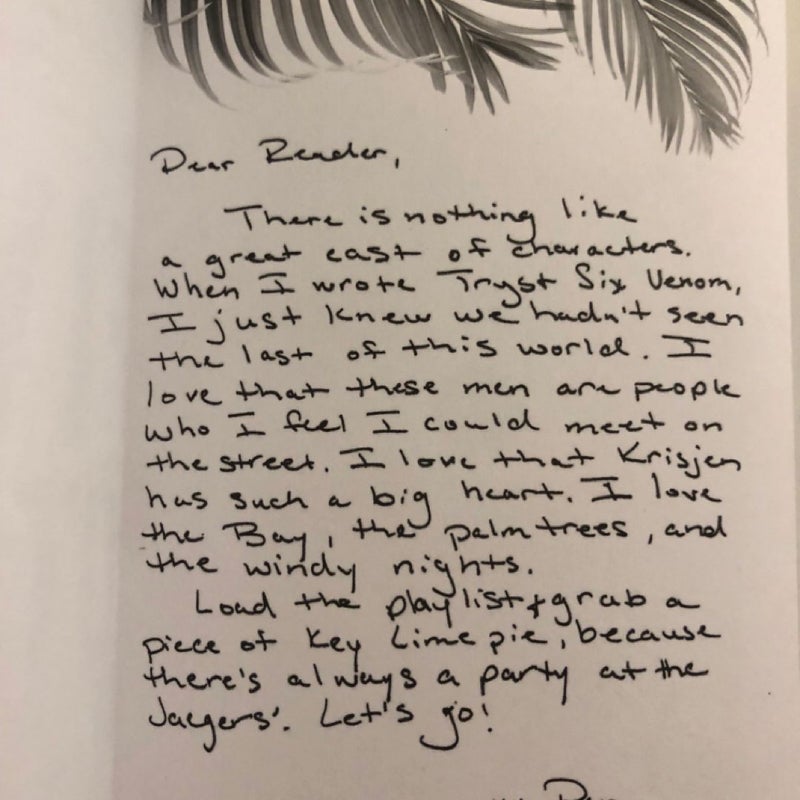 Dear Reader,
There is nothing like
a great cast of characters.
When I wrote Tryst Six Venom,
I just knew we hadn't seen
the last of this world. I
love that these men are people
who I feel I could meet on
the street. I love that Krisjen
has such a big heart. I love
the Bay, the palm trees, and
the windy nights.
Load the playlist & grab a
piece of Key Lime pie, because
there's always a party at the
Jaegers'. Let's go!